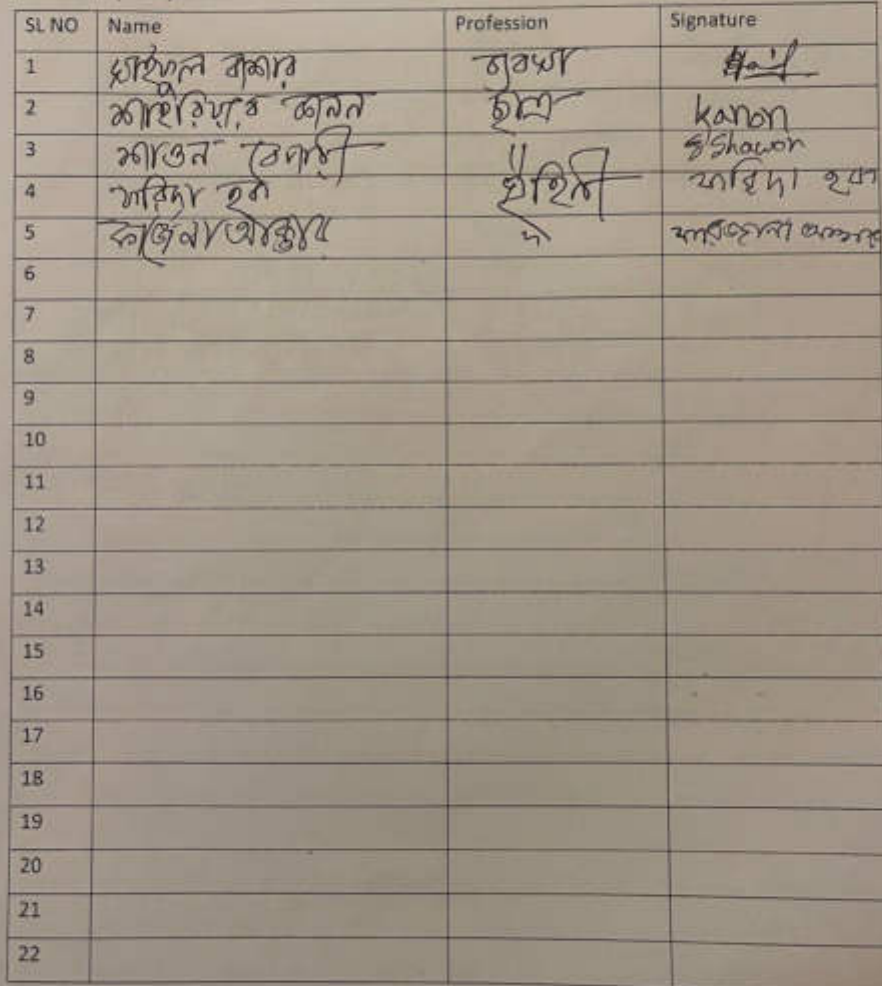 SL NO Name Profession Signature
1 সাইফুল বাশার ব্যবসা
2 শাহরিয়ার কানন ছাত্র Kanon
3 শাওন বেপারী " Shawon
4 ফরিদা হক গৃহিনী ফরিদা হক
5 ফার্জানা আক্তার ফারজানা আক্তার
6
7
8
9
10
11
12
13
14
15
16
17
18
19
20
21
22